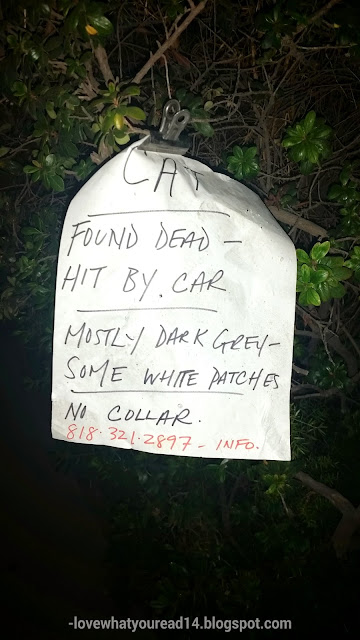 CAT
FOUND DEAD -
HIT BY CAR
MOSTLY DARK GREY-
SOME WHITE PATCHES
NO COLLAR.
818.321.2897 - INFO.
-lovewhatyouread14.blogspot.com